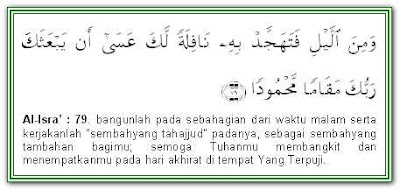 وَمِنَ ٱلَّيْلِ فَتَهَجَّدْ بِهِۦ نَافِلَةً لَّكَ عَسَىٰٓ أَن يَبْعَثَكَ
رَبُّكَ مَقَامًا مَّحْمُودًا ﴿٧٩﴾
Al-Isra' : 79. bangunlah pada sebahagian dari waktu malam serta
kerjakanlah "sembahyang tahajjud" padanya, sebagai sembahyang
tambahan bagimu; semoga Tuhanmu membangkit dan
menempatkanmu pada hari akhirat di tempat Yang Terpuji.